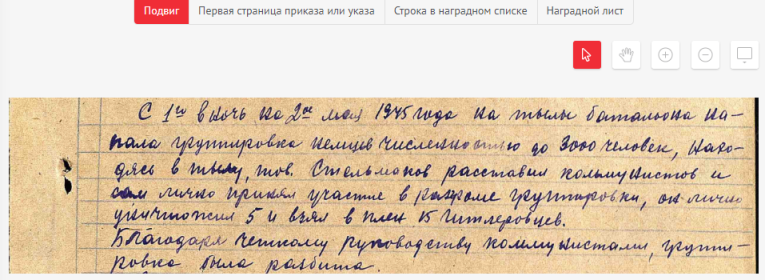 Подвиг Первая страница приказа или указа Строка в наградном списке Наградной лист
С 1го в ночь на 2ое мая 1945 года на тылы батальона на-
пала группировка немцев численностью до 3000 человек, нахо-
дясь в тылу, тов. Стельмахов расставил коммунистов и
сам лично принял участие в разгроме группировки, он лично
уничтожил 5 и взял в плен 15 гитлеровцев.
Благодаря четкому руководству коммунистами, группи-
ровка была разбита.